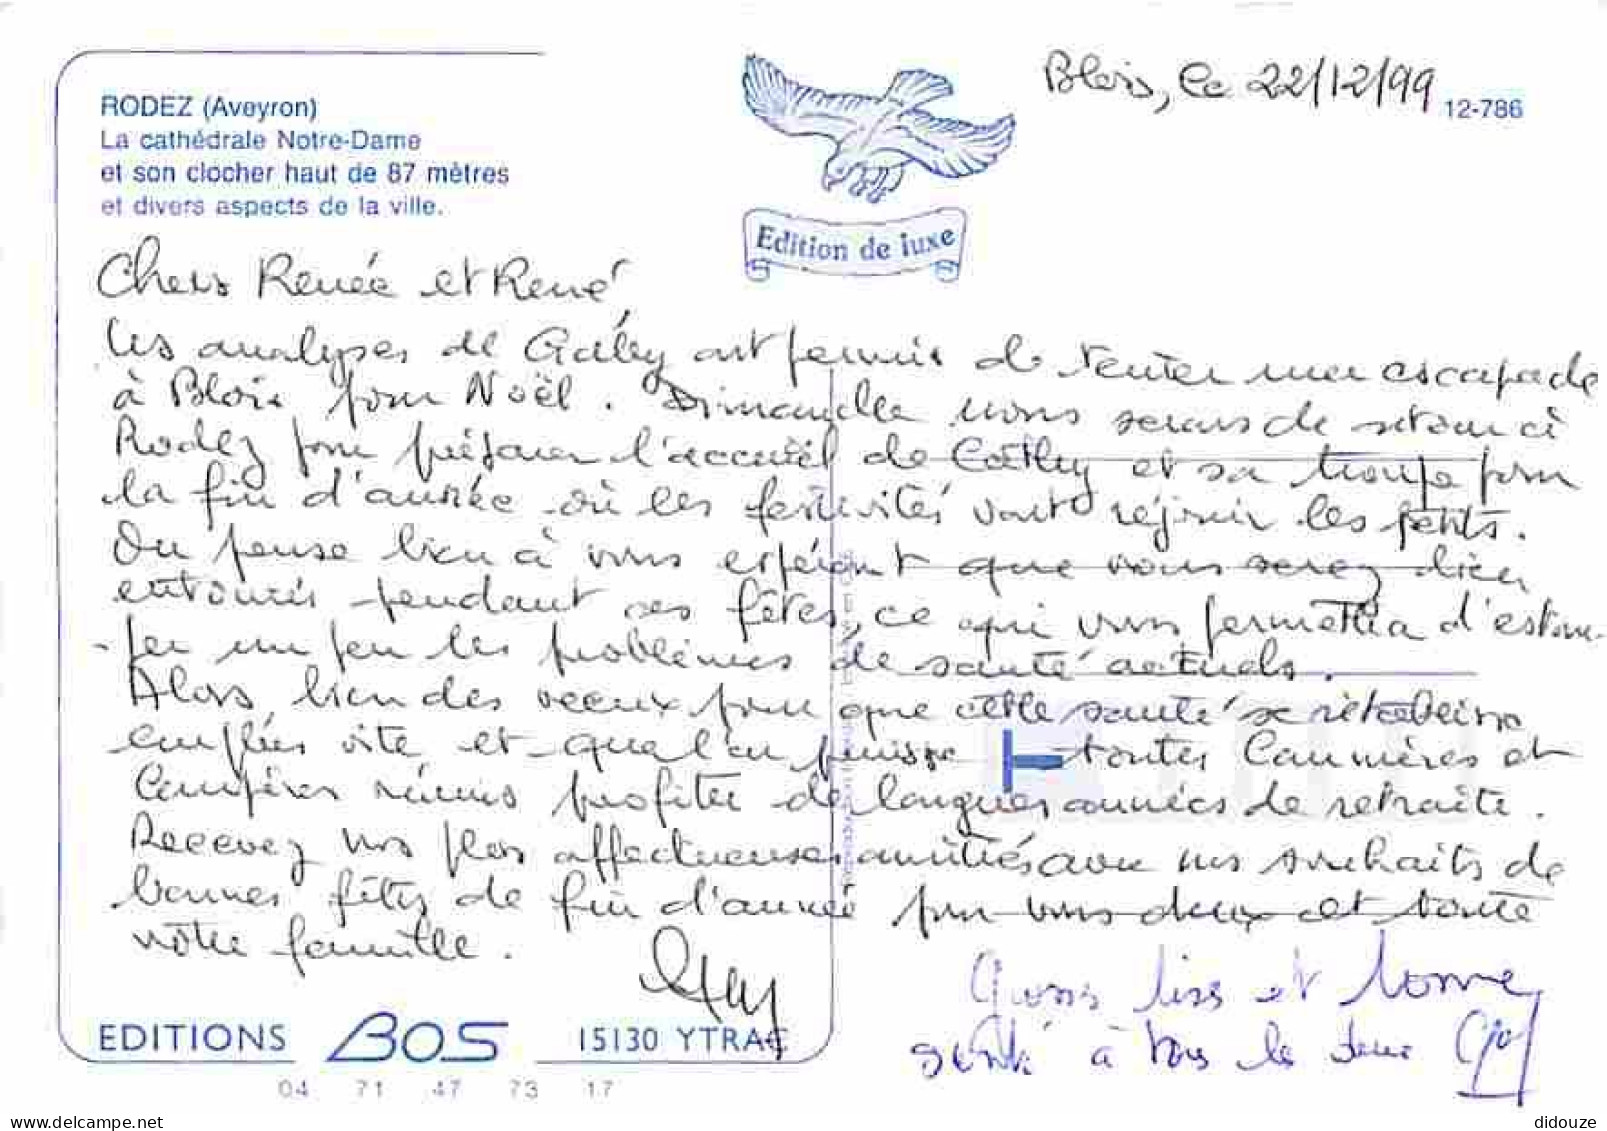 Blois, le 22/12/99
12-786
RODEZ (Aveyron)
La cathédrale Notre-Dame
et son clocher haut de 87 mètres
et divers aspects de la ville.
Edition de luxe
Chers Renée et René,
Les analyses de Gaby ont permis de tenter une escapade
à Blois pour Noël. Dimanche nous serons de retour à
Rodez pour préparer l'accueil de Cathy et sa troupe pour
la fin d'année où les festivités vont réjouir les petits.
On pense bien à vous espérant que vous serez bien
entourés pendant ces fêtes, ce qui vous permettra d'estom-
-per un peu les problèmes de santé actuels.
Alors, bien des voeux pour que cette santé se rétablisse
complètement vite et que l'on puisse toutes Commères et
Compères réunis profiter de longues années de retraite.
Recevez nos plus affectueuses amitiés avec nos souhaits de
bonnes fêtes de fin d'année pour vous deux et toute
votre famille.
Gross biss et bonne
santé à tous les deux
EDITIONS BOS 15130 YTRAC
04 71 47 73 17
didouze